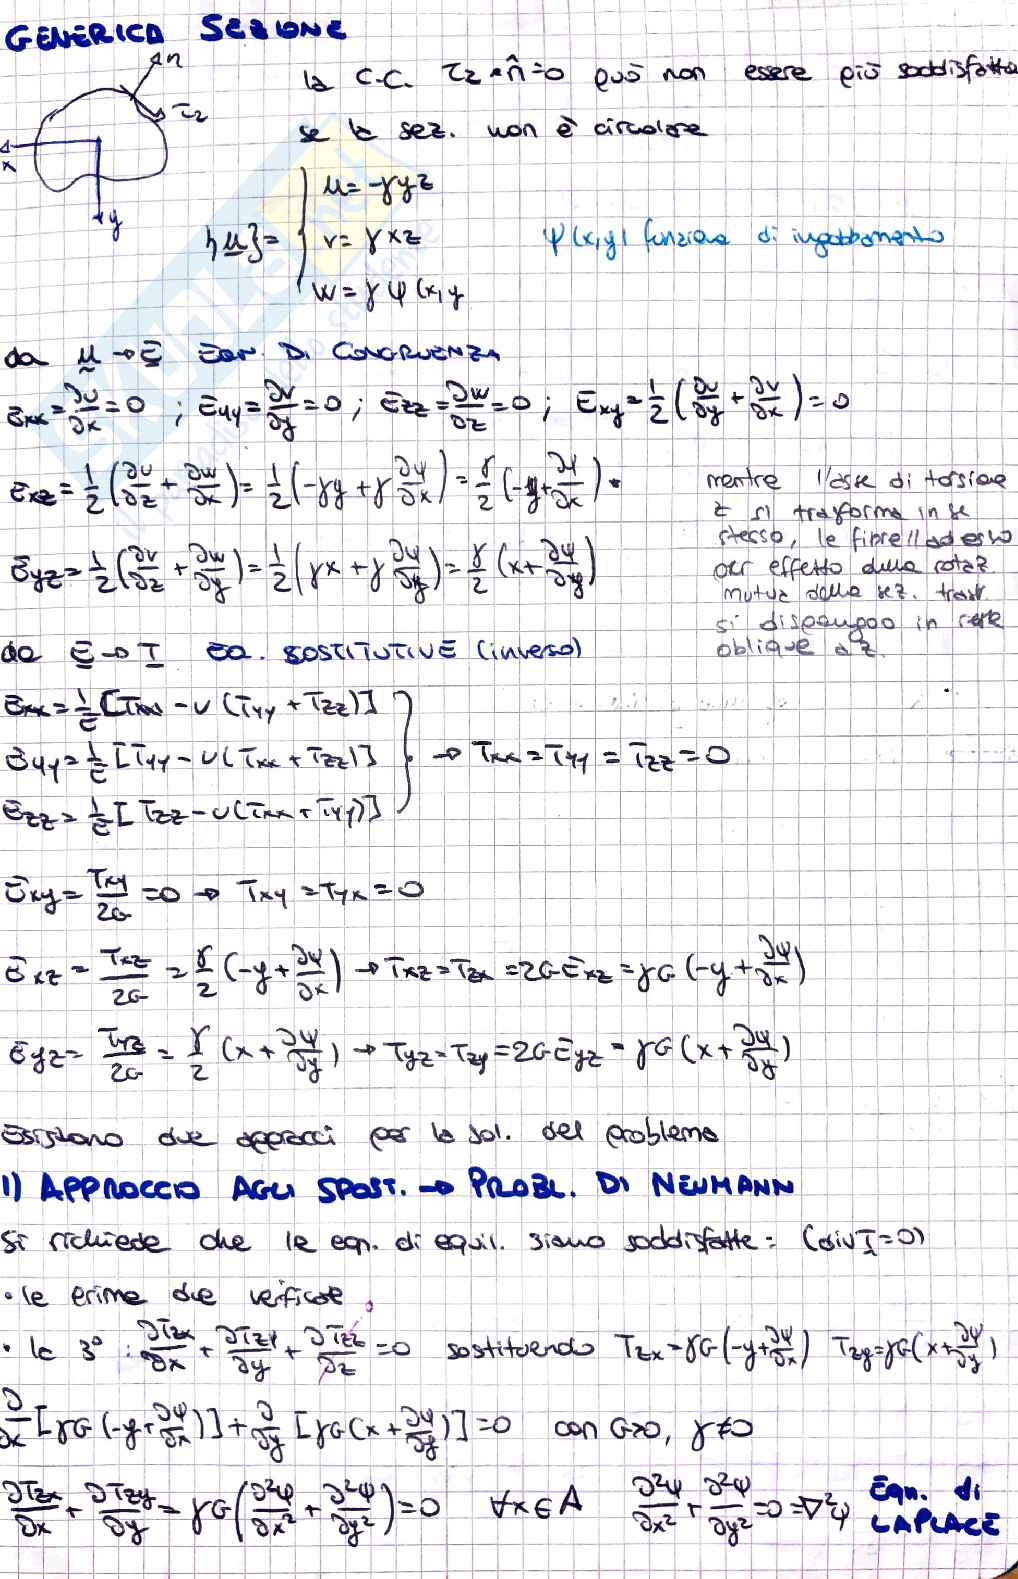 GENERICA SEZIONE
n
τz
x
y
la C.C. τz • n̂ = 0 può non essere più soddisfatta
se la sez. non è circolare
{u} = { u = -γyz
v = γxz
w = γψ(x,y
ψ(x,y) funzione di ingobbamento
da u → E EQN. DI CONGRUENZA
Exx = ∂u/∂x = 0 ; Eyy = ∂v/∂y = 0 ; Ezz = ∂w/∂z = 0 ; Exy = 1/2 (∂u/∂y + ∂v/∂x) = 0
Exz = 1/2 (∂u/∂z + ∂w/∂x) = 1/2 (-γy + γ ∂ψ/∂x) = γ/2 (-y + ∂ψ/∂x)
Eyz = 1/2 (∂v/∂z + ∂w/∂y) = 1/2 (γx + γ ∂ψ/∂y) = γ/2 (x + ∂ψ/∂y)
mentre l'asse di torsione
z si trasforma in se
stesso, le fibre // ad esso
per effetto della rotaz.
mutua della sez. trasv.
si dispongono in rette
oblique a z.
da E → T EQ. COSTITUTIVE (inverso)
Exx = 1/E [Txx - ν (Tyy + Tzz)]
Eyy = 1/E [Tyy - ν (Txx + Tzz)] } → Txx = Tyy = Tzz = 0
Ezz = 1/E [Tzz - ν (Txx + Tyy)]
Exy = Txy/2G = 0 → Txy = Tyx = 0
Exz = Txz/2G = γ/2 (-y + ∂ψ/∂x) → Txz = Tzx = 2G Exz = γG (-y + ∂ψ/∂x)
Eyz = Tyz/2G = γ/2 (x + ∂ψ/∂y) → Tyz = Tzy = 2G Eyz = γG (x + ∂ψ/∂y)
Esistono due approcci per la sol. del problema
1) APPROCCIO AGLI SPOST. → PROBL. DI NEUMANN
Si richiede che le eqn. di equil. siano soddisfatte: (div T = 0)
• le prime due verificate
• la 3° : ∂Tzx/∂x + ∂Tzy/∂y + ∂Tzz/∂z = 0 sostituendo Tzx = γG (-y + ∂ψ/∂x) Tzy = γG (x + ∂ψ/∂y)
∂/∂x [γG (-y + ∂ψ/∂x)] + ∂/∂y [γG (x + ∂ψ/∂y)] = 0 con G>0, γ≠0
∂Tzx/∂x + ∂Tzy/∂y = γG (∂²ψ/∂x² + ∂²ψ/∂y²) = 0 ∀x ∈ A ∂²ψ/∂x² + ∂²ψ/∂y² = 0 = ∇²ψ Eqn. di
LAPLACE